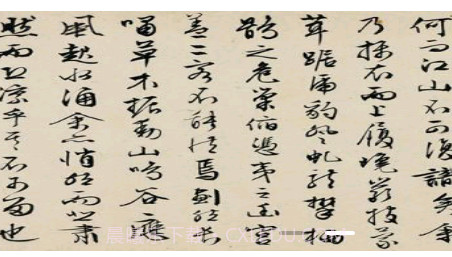 何而江山不可復識矣余
乃攝衣而上履巉岩披蒙
茸踞虎豹登虬龍攀栖
鶻之危巢俯憑夷之幽宮
蓋二客不能從焉劃然長
嘯草木振動山鳴谷應
風起水涌余亦悄然而悲肅
然而恐凛乎其不可留也